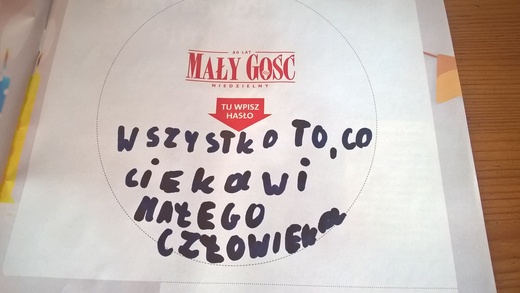 90 LAT
MAŁY GOŚĆ
NIEDZIELNY
TU WPISZ
HASŁO
WSZYSTKO TO, CO
CiEKAWi
MAŁEGO
CZŁOWIEKA